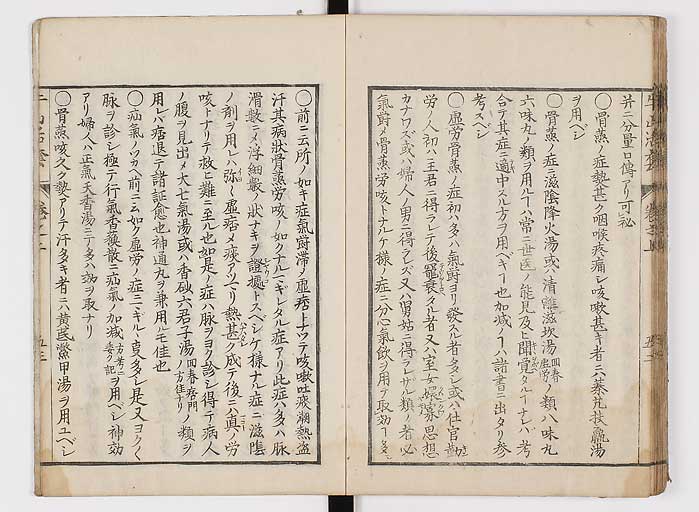 并ニ分量口傳アリ可秘
〇骨蒸ノ症熱甚ク咽喉疼痛シ咳嗽甚キ者ニハ秦艽扶羸湯
ヲ用ベシ
〇骨蒸ノ症ニ滋陰降火湯或ハ清離滋坎湯回春虚労ノ類八味丸
六味丸ノ類ヲ用ルヿハ常ニ世医ノ能見及ヒ聞覚タルヿナレバ考
合テ其症ニ適中スル方ヲ用ベキヿ也加減ノヿハ諸書ニ出タリ参
考スベシ
〇虚労骨蒸ノ症初ハ多ハ氣欝ヨリ發スル者多シ或ハ仕官勤
労ノ人初ハ主君ニ得ラレテ後罷棄タル者又ハ室女孀思想
カナワズ或ハ婦人ノ男ニ得ラレズ又ハ舅姑ニ得ラレザル類ノ者必
氣欝メ骨蒸労咳トナルケ様ノ症ニ分心氣飲ヲ用テ取効ヿ多
〇前ニ云所ノ如キ症氣欝滞ノ虚痞トナツテ咳嗽吐痰潮熱盗
汗其病状骨蒸労咳ノ如クナルニギレタル症アリ此症ハ多ハ脉
滑數ニノ浮細數ノ状ナキヲ證據トスベシケ様ナル症ニ滋陰
ノ剤ヲ用レバ弥虚痞メ痰アツマリ熱甚ク成テ後ニハ真ノ労
咳トナリテ救ヒ難ニ至ル也如是ノ症ハ脉ヲヨク診シ得テ病人
ノ腹ヲ見出メ大七氣湯或ハ香砂六君子湯回春痞門ノ方佳ナリノ類ヲ
用レバ痞退テ諸証愈也神通丸ヲ兼用ルモ佳也
〇疝氣ノツカヘ前ニ云如ク虚労ノ症ニギルヽ夏多シ是又ヨクヽ
脉ヲ診シ極テ行氣香蘇散ニ疝氣ノ加減ヲ用ベシ神効
アリ婦人ハ正氣天香湯ニテ多ハ効ヲ取ナリ
〇骨蒸咳久ク熱アリテ汗多キ者ニハ黄芪鱉甲湯ヲ用ユベシ
五三